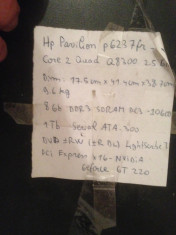 Hp Pavilion p6237fr
Core 2 Quad Q8200 2.5
17.5cm x 41.4cm x 38.7cm
9.6 kg
8 Gb DDR3 SDRAM
1 Tb Serial ATA 300
DVD ±RW (±R DL) LightScribe
PCI Express x16 - NVIDIA
GeForce GT 220